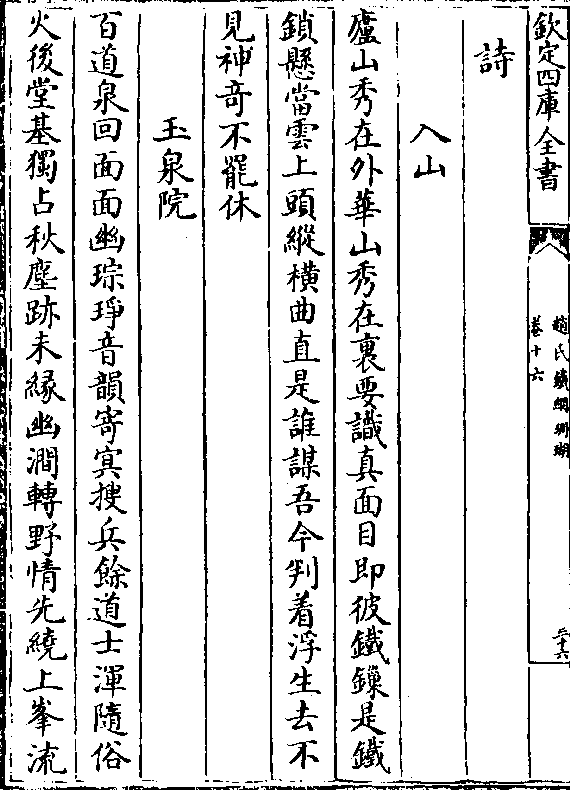 欽定四庫全書
趙氏鐵網珊瑚
卷十六
三十六
詩
入山
廬山秀在外華山秀在裏要識真面目即彼鐵鏁是鐵
鎖懸當雲上頭縱橫曲直是誰謀吾今判着浮生去不
見神竒不罷休
玉泉院
百道泉回面面幽琮琤音韻寄㝠搜兵餘道士渾隨俗
火後堂基獨占秋塵跡未緣幽澗轉野情先繞上峯流